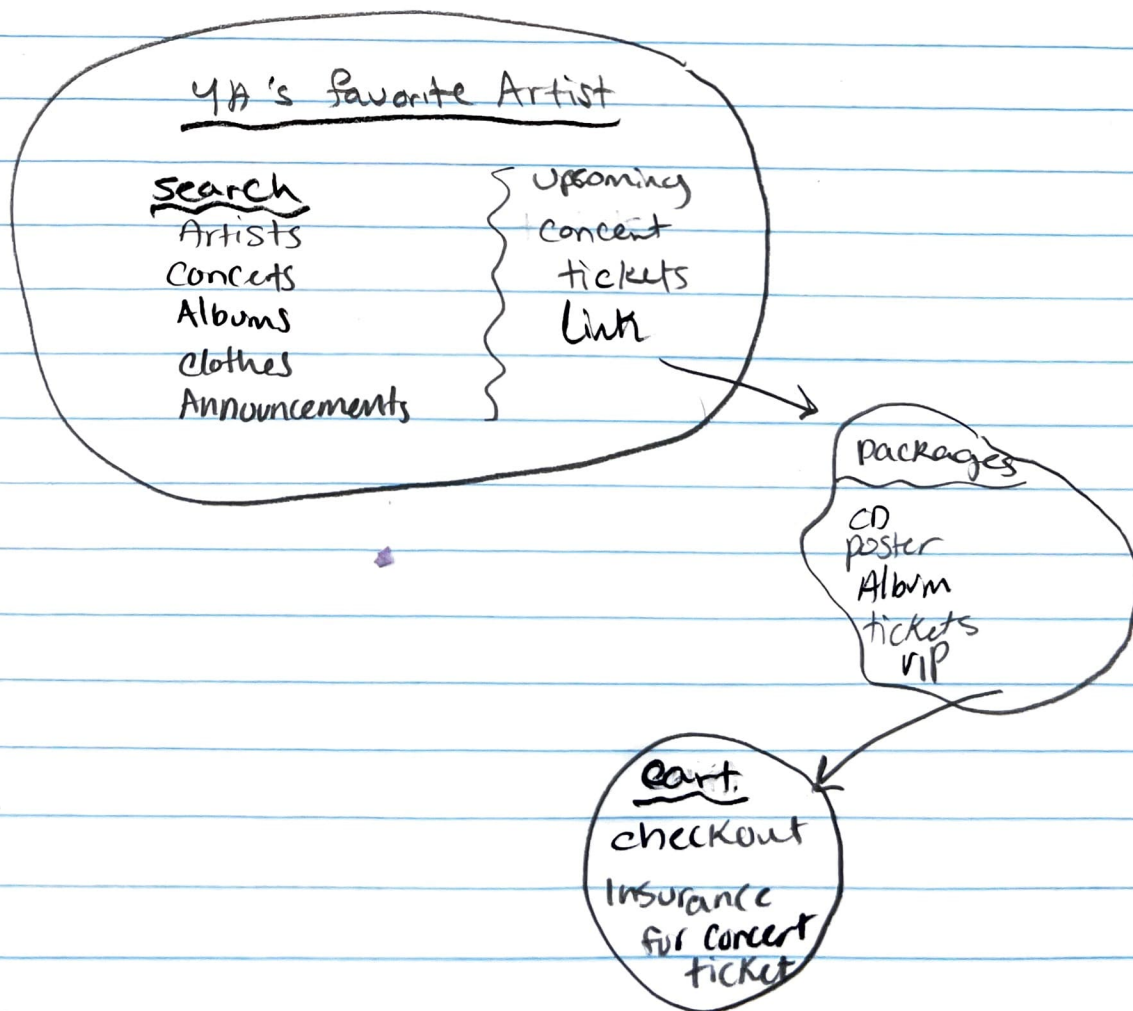 YA's favorite Artist
search
Artists
Concets
Albums
Clothes
Announcements
upsoming
concent
tickets
Link
packages
CD
poster
Album
tickets
VIP
cart.
checkout
Insurance
for concert
ticket